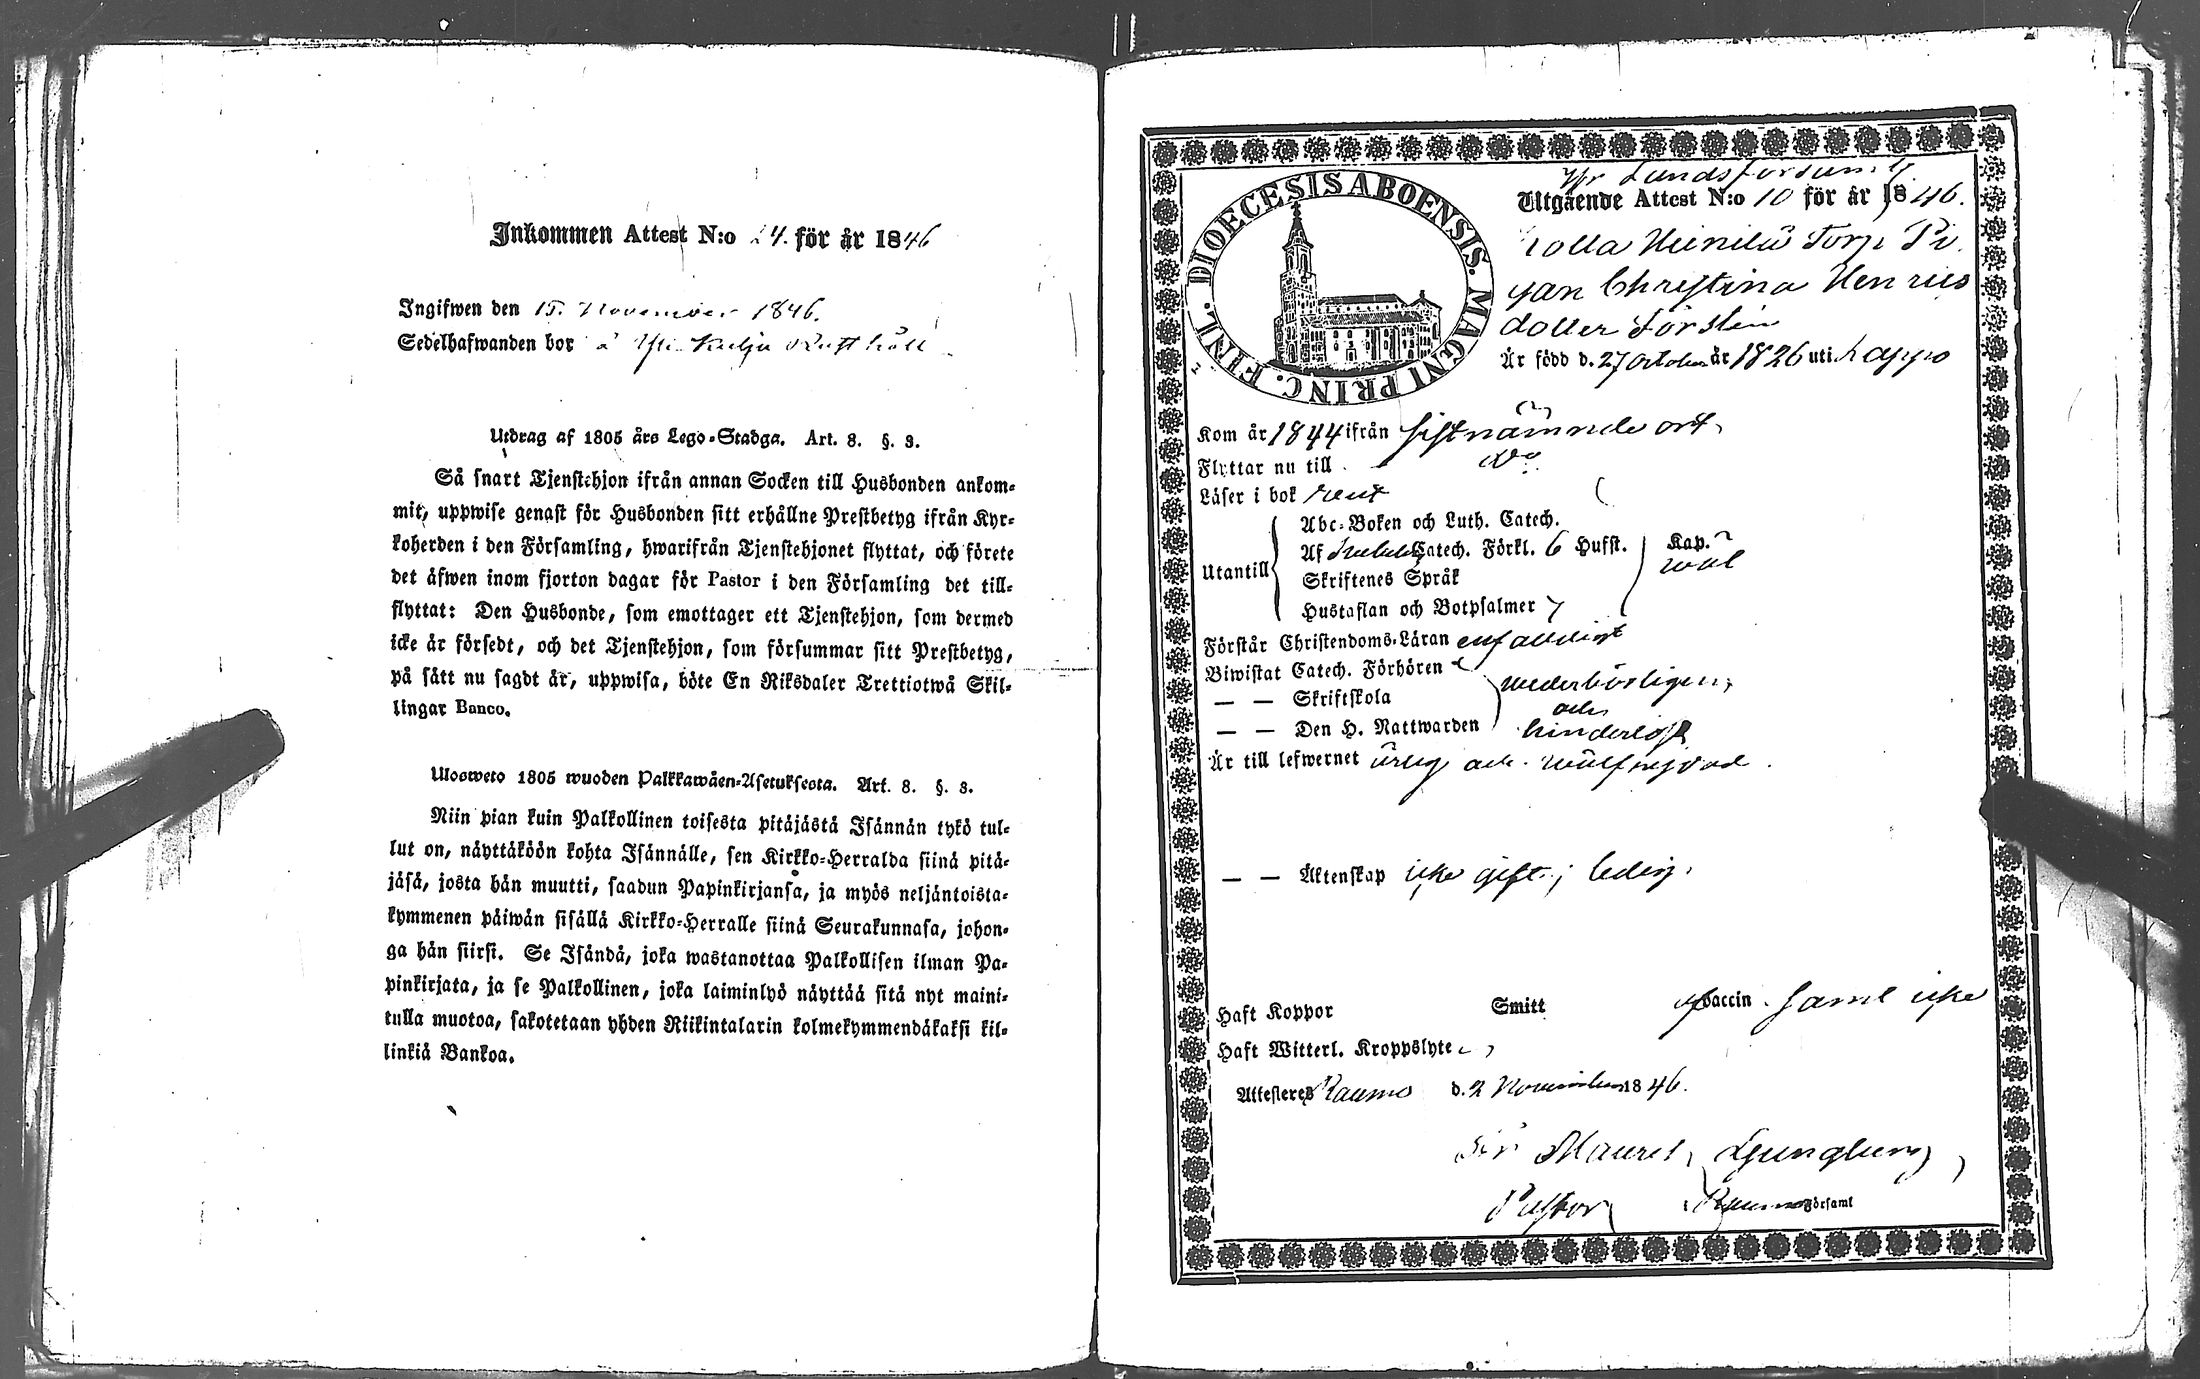 Inkommen Attest N:o 24. för år 1846
Ingifwen den 15. November 1846.
Sedelhafwanden bor å Yli Kulju Rusthåll
Utdrag af 1805 års Lego-Stadga. Art. 8. §. 3.
Så snart Tjenstehjon ifrån annan Socken till Husbonden ankom-
mit, uppwise genast för Husbonden sitt erhållne Prestbetyg ifrån Kyr-
koherden i den Församling, hwarifrån Tjenstehjonet flyttat, och förete
det äfwen inom fjorton dagar för Pastor i den Församling det till-
flyttat: Den Husbonde, som emottager ett Tjenstehjon, som dermed
icke är försedt, och det Tjenstehjon, som försummar sitt Prestbetyg,
på sätt nu sagdt är, uppwisa, böte En Riksdaler Trettiotwå Skil-
lingar Banco.
Ulosweto 1805 wuoden Palkkawäen-Asetuksesta. Art. 8. §. 3.
Niin pian kuin Palkollinen toisesta pitäjästä Isännän tykö tul-
lut on, näyttäköön kohta Isännälle, sen Kirkko-Herralda siinä pitä-
jäsä, josta hän muutti, saadun Papinkirjansa, ja myös neljäntoista-
kymmenen päiwän sisällä Kirkko-Herralle siinä Seurakunnasa, johon-
ga hän siirsi. Se Isändä, joka wastanottaa Palkollisen ilman Pa-
pinkirjata, ja se Palkollinen, joka laiminlyö näyttää sitä nyt maini-
tulla muotoa, sakotetaan yhden Riikintalarin kolmekymmendäkaksi kil-
linkiä Bankoa.
DIOECESIS ABOENSIS. MAGNI PRINC. FINL.
fr Landsförsaml.
Utgående Attest N:o 10 för år 1846.
Heinilä Torp Pi
gan Christina Henrics
dotter Forsten
Är född d. 27 October år 1826 uti Lappo
Kom år 1844 ifrån sistnämnde ort
Flyttar nu till do
Läser i bok rent
Utantill
Abc-Boken och Luth. Catech.
Af Catech. Förkl. 6 Hufst. Kap.
Skriftenes Språk wäl
Hustaflan och Botpsalmer 7
Förstår Christendoms-Läran enfaldigt
Biwistat Catech. Förhören
— — Skriftskola wederbörligen
och
— — Den H. Nattwarden hinderlös
Är till lefwernet ärlig och wälfrejdad.
— — Äktenskap icke gift; ledig.
Haft Koppor Smitt Vaccin. samt icke
Haft Witterl. Kroppslyte
Attesteres Raumo d. 2 November 1846.
Maurit. Ljungberg
Pastor Raumo Församl